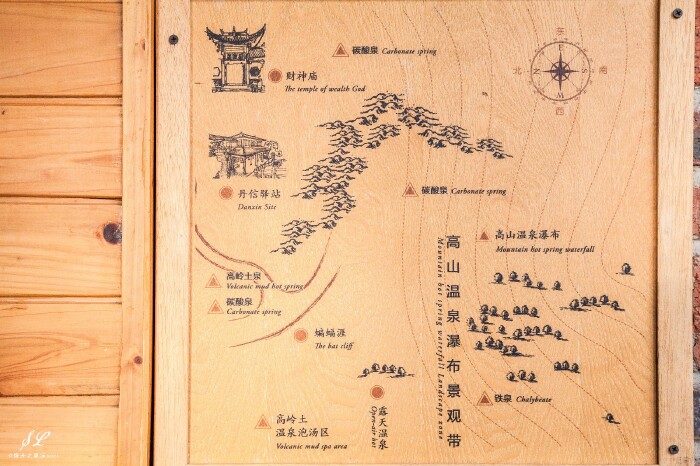 碳酸泉 Carbonate spring
财神庙
The temple of wealth God
东
北
南
西
丹信驿站
Danxin Site
碳酸泉 Carbonate spring
高山温泉瀑布
Mountain hot spring waterfall
高岭土泉
Volcanic mud hot spring
碳酸泉
Carbonate spring
蝙蝠涯
The bat cliff
高山温泉瀑布景观带
Mountain hot spring waterfall Landscape zone
露天温泉
Open-air hot
铁泉 Chalybeate
高岭土
温泉泡汤区
Volcanic mud spa area